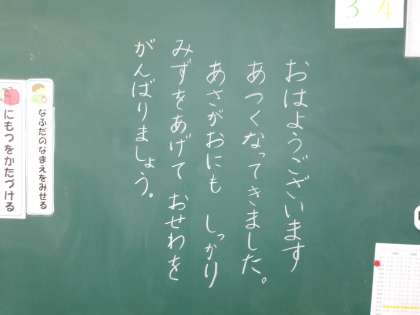 3
4
おはようございます
あつくなってきました。
あさがおにも しっかり
みずをあげて おせわを
がんばりましょう。
なふだのなまえをみせる
にもつをかたづける